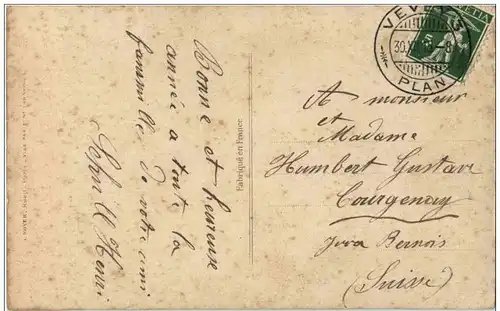 Bonne et heureuse
année à toute la
fammille de votre ami
Henri
Fabriqué en France
HELVETIA
VEVEY
30.XII
PLAN
A monsieur
et
Madame
Humbert Gustave
Courgenay
Jura Bernois
(Suisse)